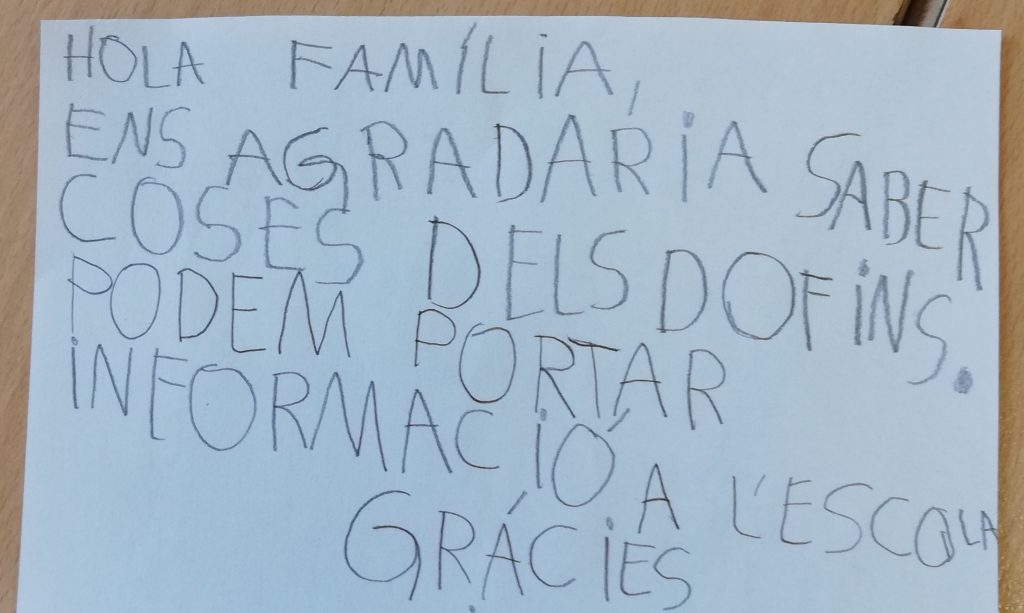 HOLA FAMÍLiA,
ENS AGRADARiA SABER
COSES DELS DOFiNS.
PODEM PORTAR
iNFORMACiÓ A L'ESCOLA
GRÁCiES